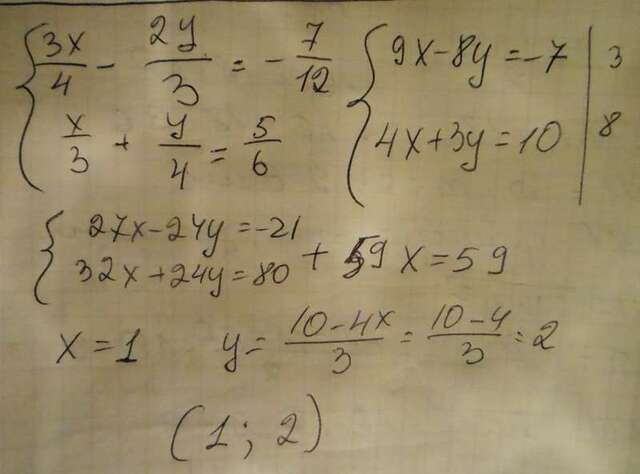 { 3x/4 - 2y/3 = -7/12 { 9x-8y=-7 | 3
x/3 + y/4 = 5/6 4x+3y=10 | 8
{ 27x-24y=-21
32x+24y=80 + 59x=59
x=1 y= 10-4x/3 = 10-4/3 = 2
(1; 2)